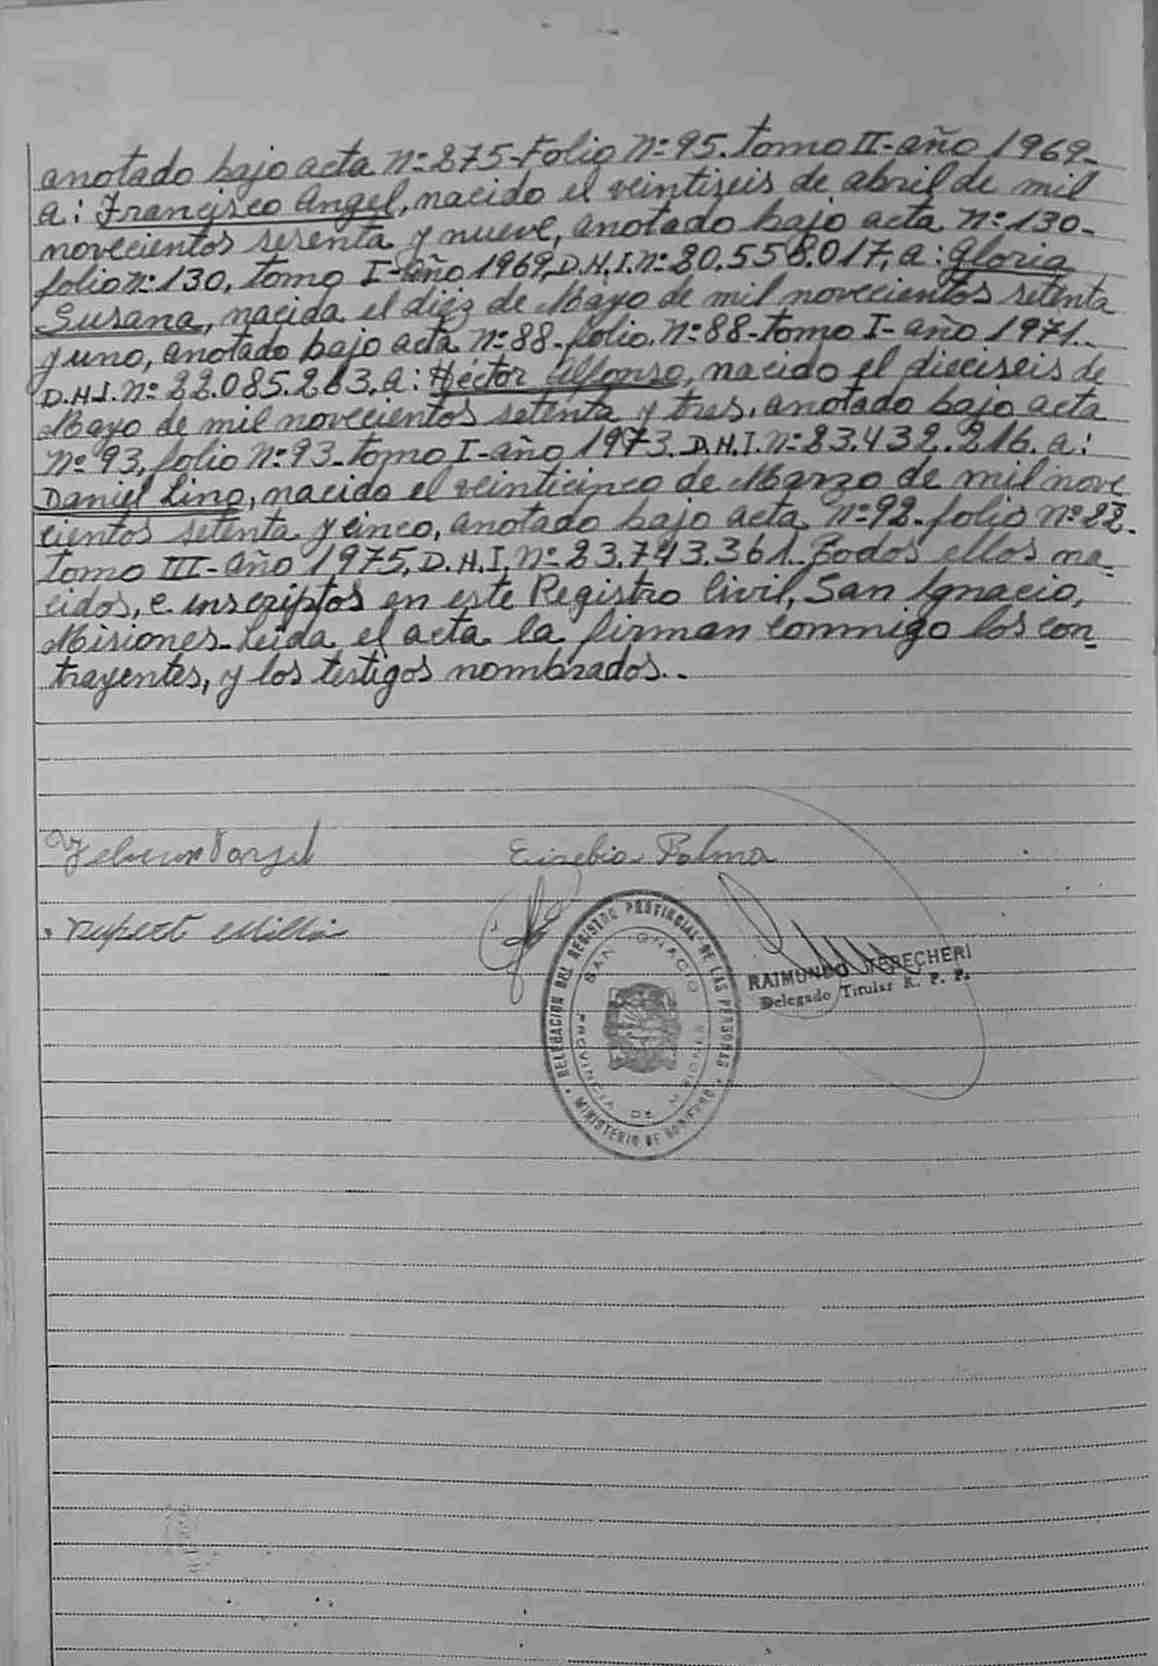 anotado bajo acta Nº 275-Folio Nº 95. tomo II-año 1969-
a: Francisco Angel, nacido el veintiseis de abril de mil
novecientos sesenta y nueve, anotado bajo acta Nº 130-
folio Nº 130, tomo I-año 1969, D.N.I. Nº 20.558.017, a: Gloria
Susana, nacida el diez de Mayo de mil novecientos setenta
y uno, anotado bajo acta Nº 88-folio. Nº 88-tomo I-año 1971..
D.N.I. Nº 22.085.263, a: Héctor Alfonso, nacido el dieciseis de
Mayo de mil novecientos setenta y tres, anotado bajo acta
Nº 93, folio Nº 93-tomo I-año 1973. D.N.I. Nº 23.432.216. a:
Daniel Lino, nacido el veinticinco de Marzo de mil nove
cientos setenta y cinco, anotado bajo acta Nº 92-folio Nº 22-
tomo III-año 1975, D.N.I. Nº 23.743.361.. Todos ellos na-
cidos, e inscriptos en este Registro Civil, San Ignacio,
Misiones-Leida el acta la firman conmigo los con-
trayentes, y los testigos nombrados..
Eusebia Palma
DELEGACION DEL REGISTRO PROVINCIAL DE LAS PERSONAS
SAN IGNACIO
PROVINCIA DE MISIONES
MINISTERIO DE GOBIERNO
RAIMUNDO
Delegado Titular R. P. P.